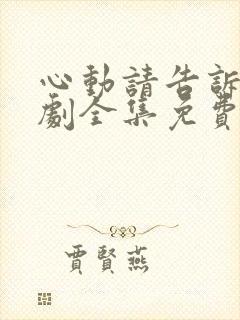 心動請告訴
劇全集免費
賈賢燕